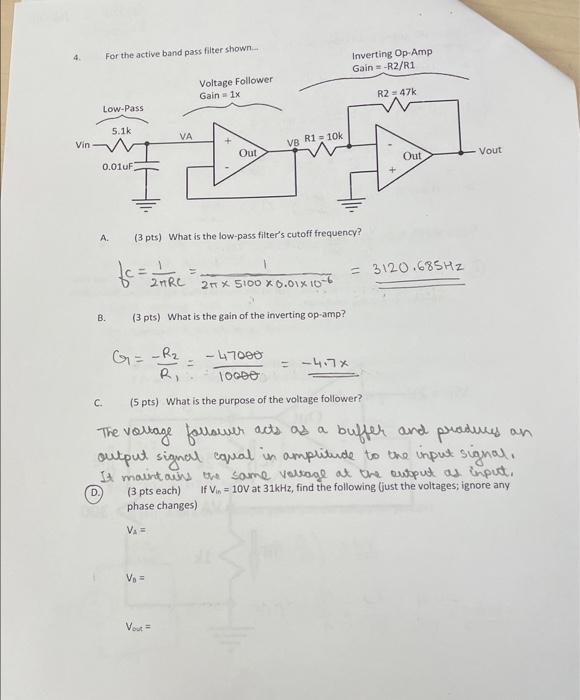 4. For the active band pass filter shown...
Inverting Op-Amp
Gain = -R2/R1
Voltage Follower
Gain = 1x
R2 = 47k
Low-Pass
5.1k
Vin
VA
+
-
Out
VB
R1 = 10k
-
+
Out
Vout
0.01uF
A. (3 pts) What is the low-pass filter's cutoff frequency?
fc = 1/2πRC = 1/2π × 5100 × 0.01 × 10⁻⁶ = 3120.685Hz
B. (3 pts) What is the gain of the inverting op-amp?
G = -R₂/R₁ = -47000/10000 = -4.7x
C. (5 pts) What is the purpose of the voltage follower?
The voltage follower acts as a buffer and produces an
output signal equal in amplitude to the input signal.
It maintains the same voltage at the output as input.
D. (3 pts each) If Vin = 10V at 31kHz, find the following (just the voltages; ignore any
phase changes)
VA =
VB =
Vout =